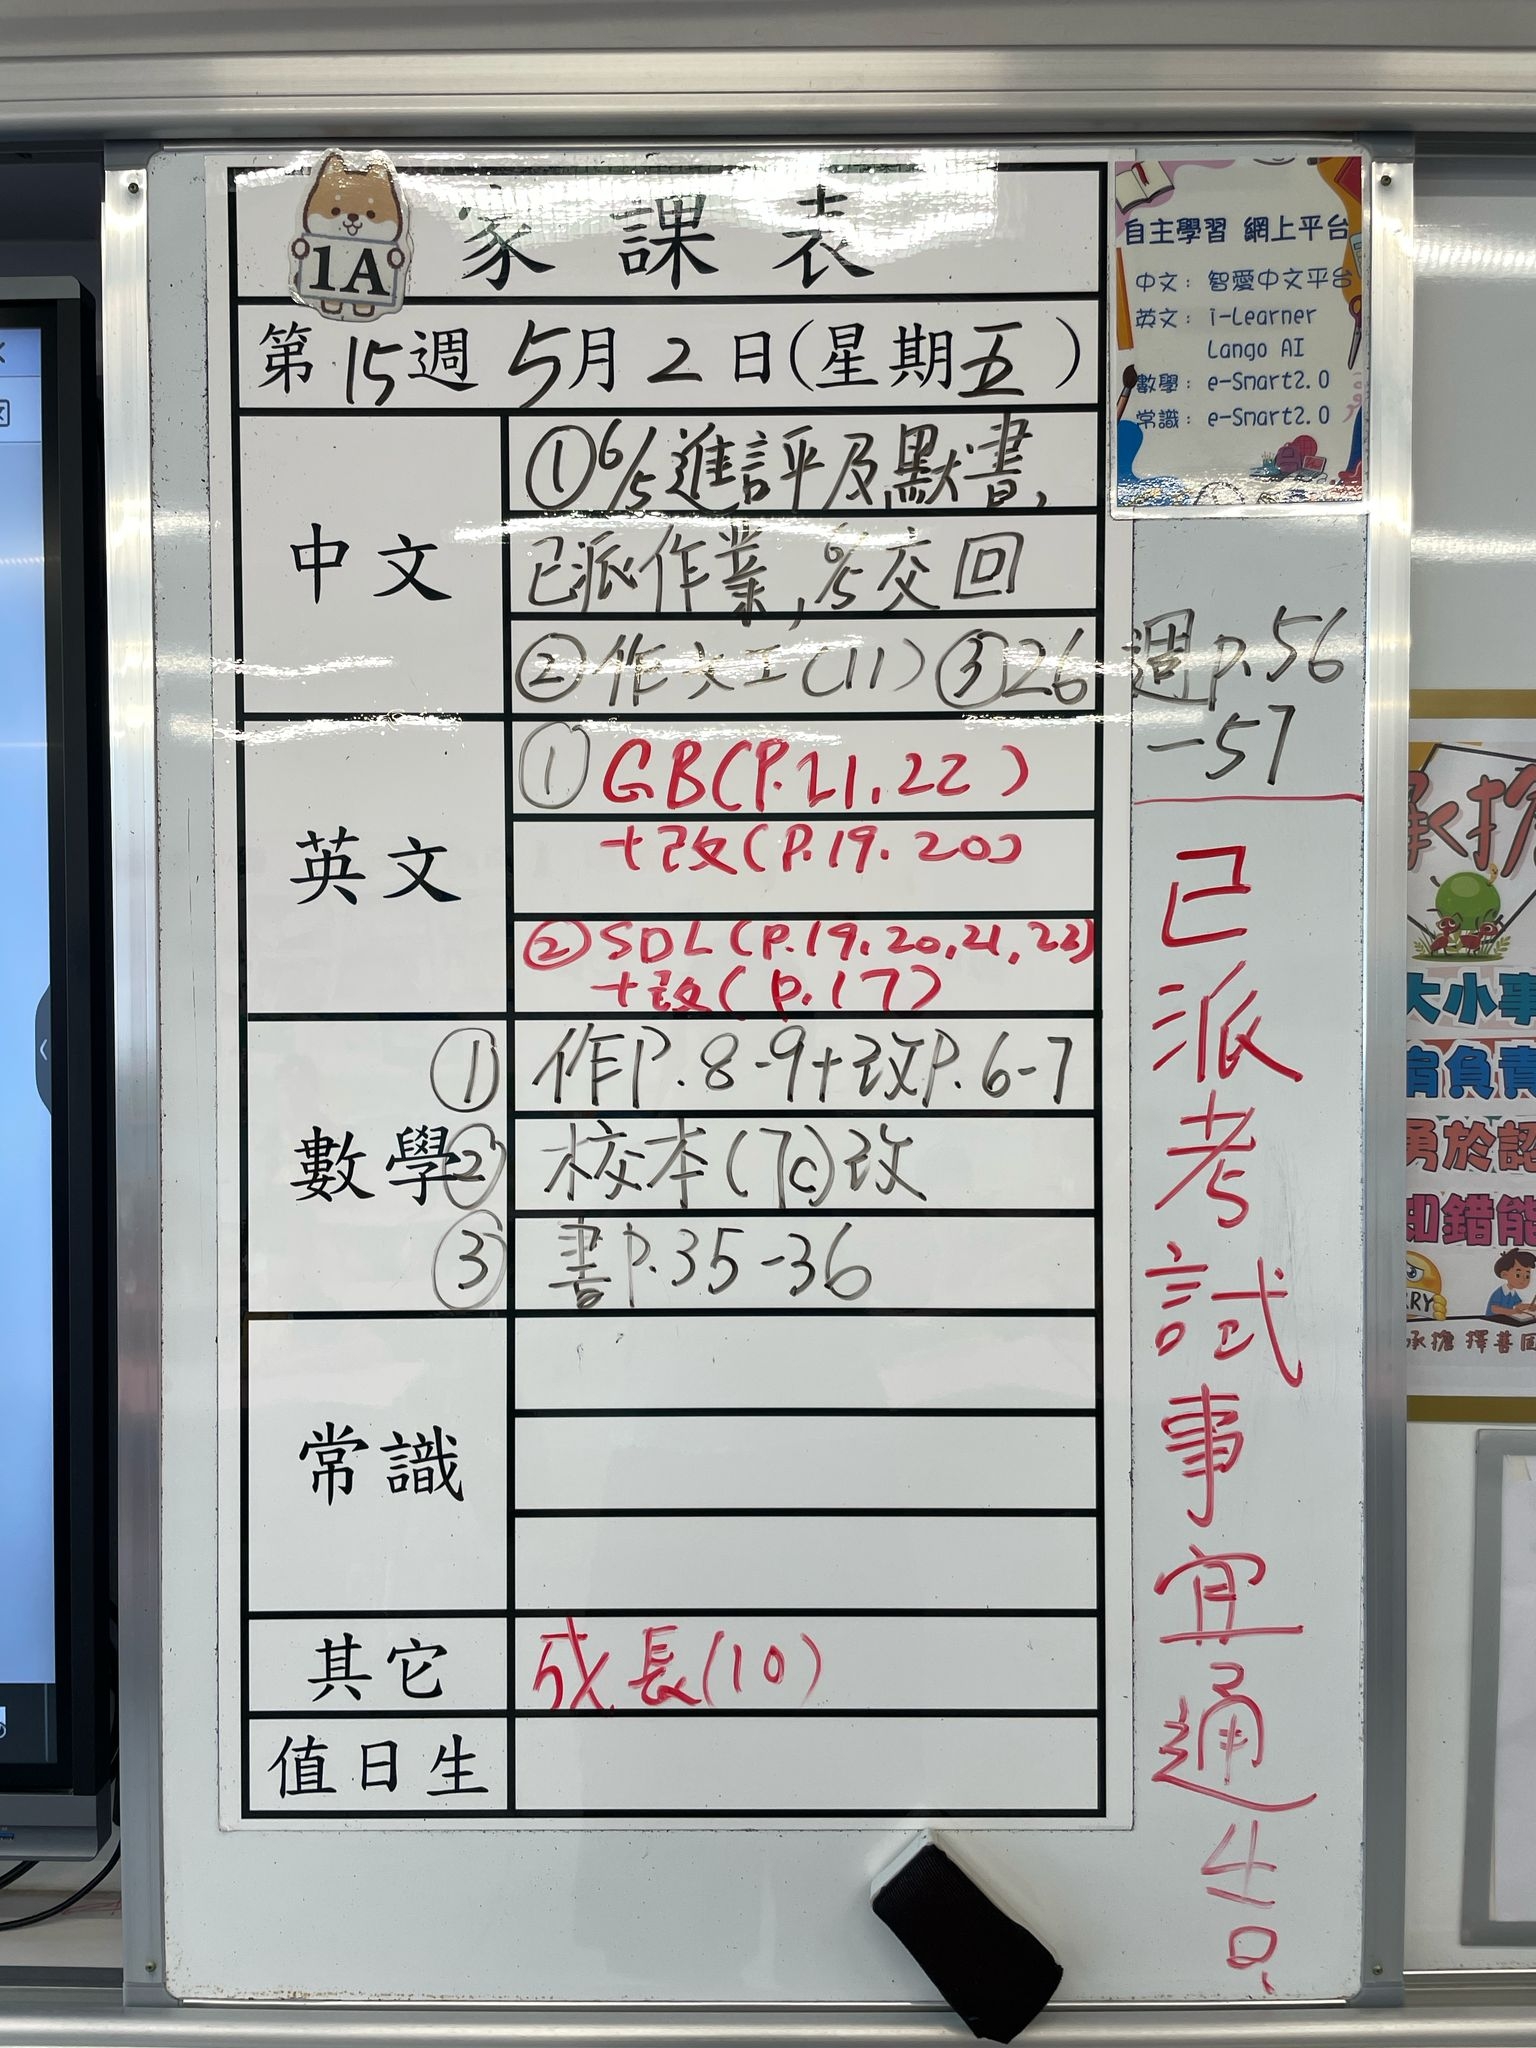 1A
家課表
第15週 5月2日(星期五)
中文
①6/5進評及默書,
已派作業, 6/5交回
②作文工(11) ③26
週p.56
-57
英文
① GB(P.21,22)
+改(P.19.20)
②SDL(P.19.20,21,22)
+改(P.17)
數學
① 作P.8-9+改P.6-7
② 校本(7C)改
③ 書P.35-36
常識
其它
成長(10)
值日生
自主學習 網上平台
中文：智愛中文平台
英文：i-Learner
Lango AI
數學：e-Smart2.0
常識：e-Smart2.0
已派考試事宜通告.
承擔
大小事
肩負責
勇於認
知錯能
承擔 擇善固